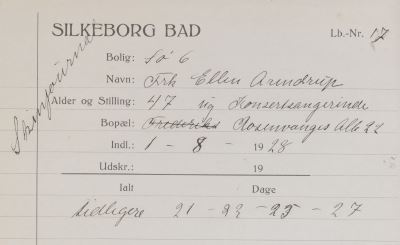 SILKEBORG BAD
Lb.-Nr. 17
Bolig: Sø 6
Navn: Frk Ellen Arendrup
Alder og Stilling: 47 ug Konsertsangerinde
Bopæl: Frederiks Rosenvænges Allé 22
Indl.: 1 - 8 - 1928
Udskr.: 19
Ialt Dage
tidligere 21 - 22 - 25 - 27